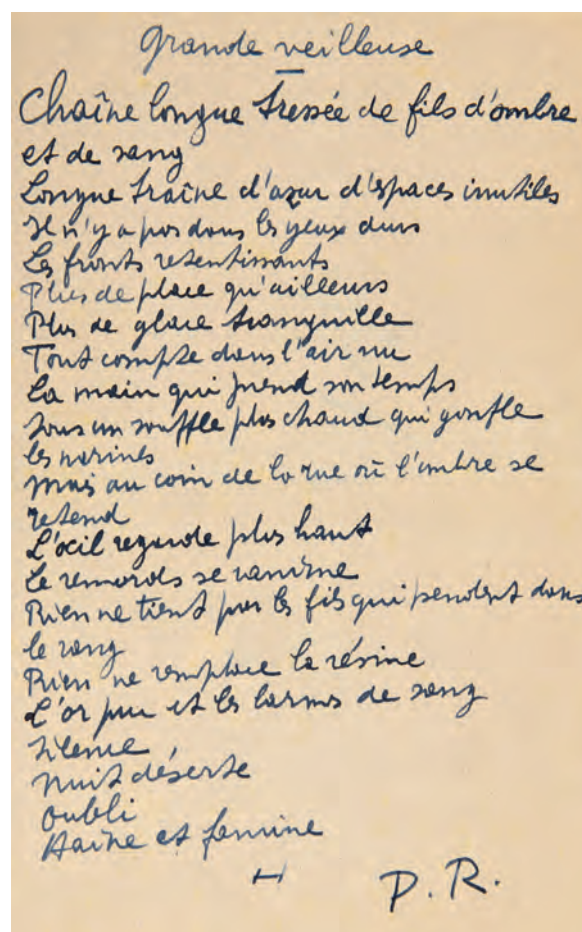 Grande veilleuse
Chaîne longue tressée de fils d'ombre
et de sang
Longue traîne d'azur d'espaces inutiles
Il n'y a pas dans les yeux durs
Les fronts retentissants
Plus de place qu'ailleurs
Plus de glace tranquille
Tout compte dans l'air nu
La main qui prend son temps
Sous un souffle plus chaud qui gonfle
les narines
Mais au coin de la rue où l'ombre se
retend
L'œil regarde plus haut
Le remords se ranime
Rien ne tient par les fils qui pendent dans
le sang
Rien ne remplace la résine
L'or pur et les larmes de sang
Silence
Nuit déserte
Oubli
Haine et famine
P.R.